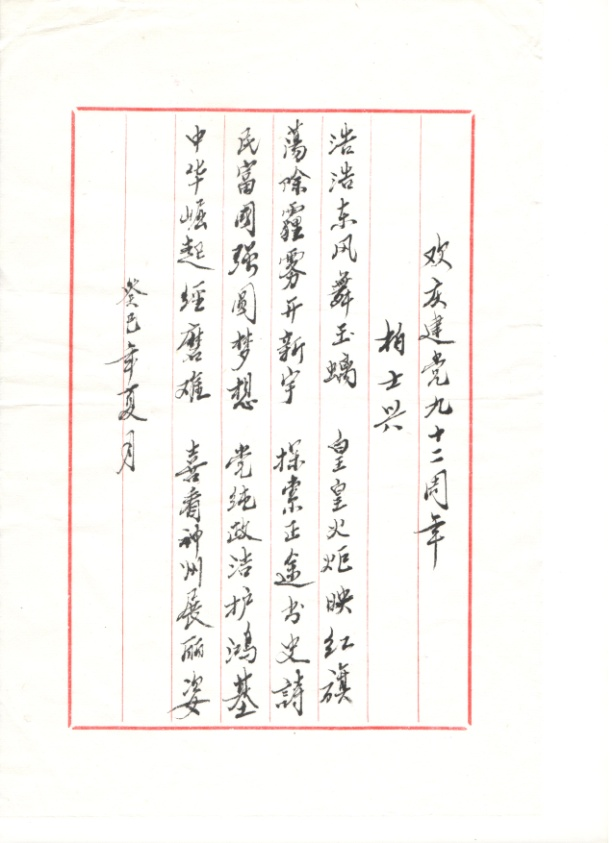 欢庆建党九十二周年
柏士兴
浩浩东风舞玉螭 皇皇火炬映红旗
荡除霾雾开新宇 探索正途书史詩
民富國强圆梦想 党纯政洁护鸿基
中华崛起经磨难 喜看神州展丽姿
癸巳年夏月